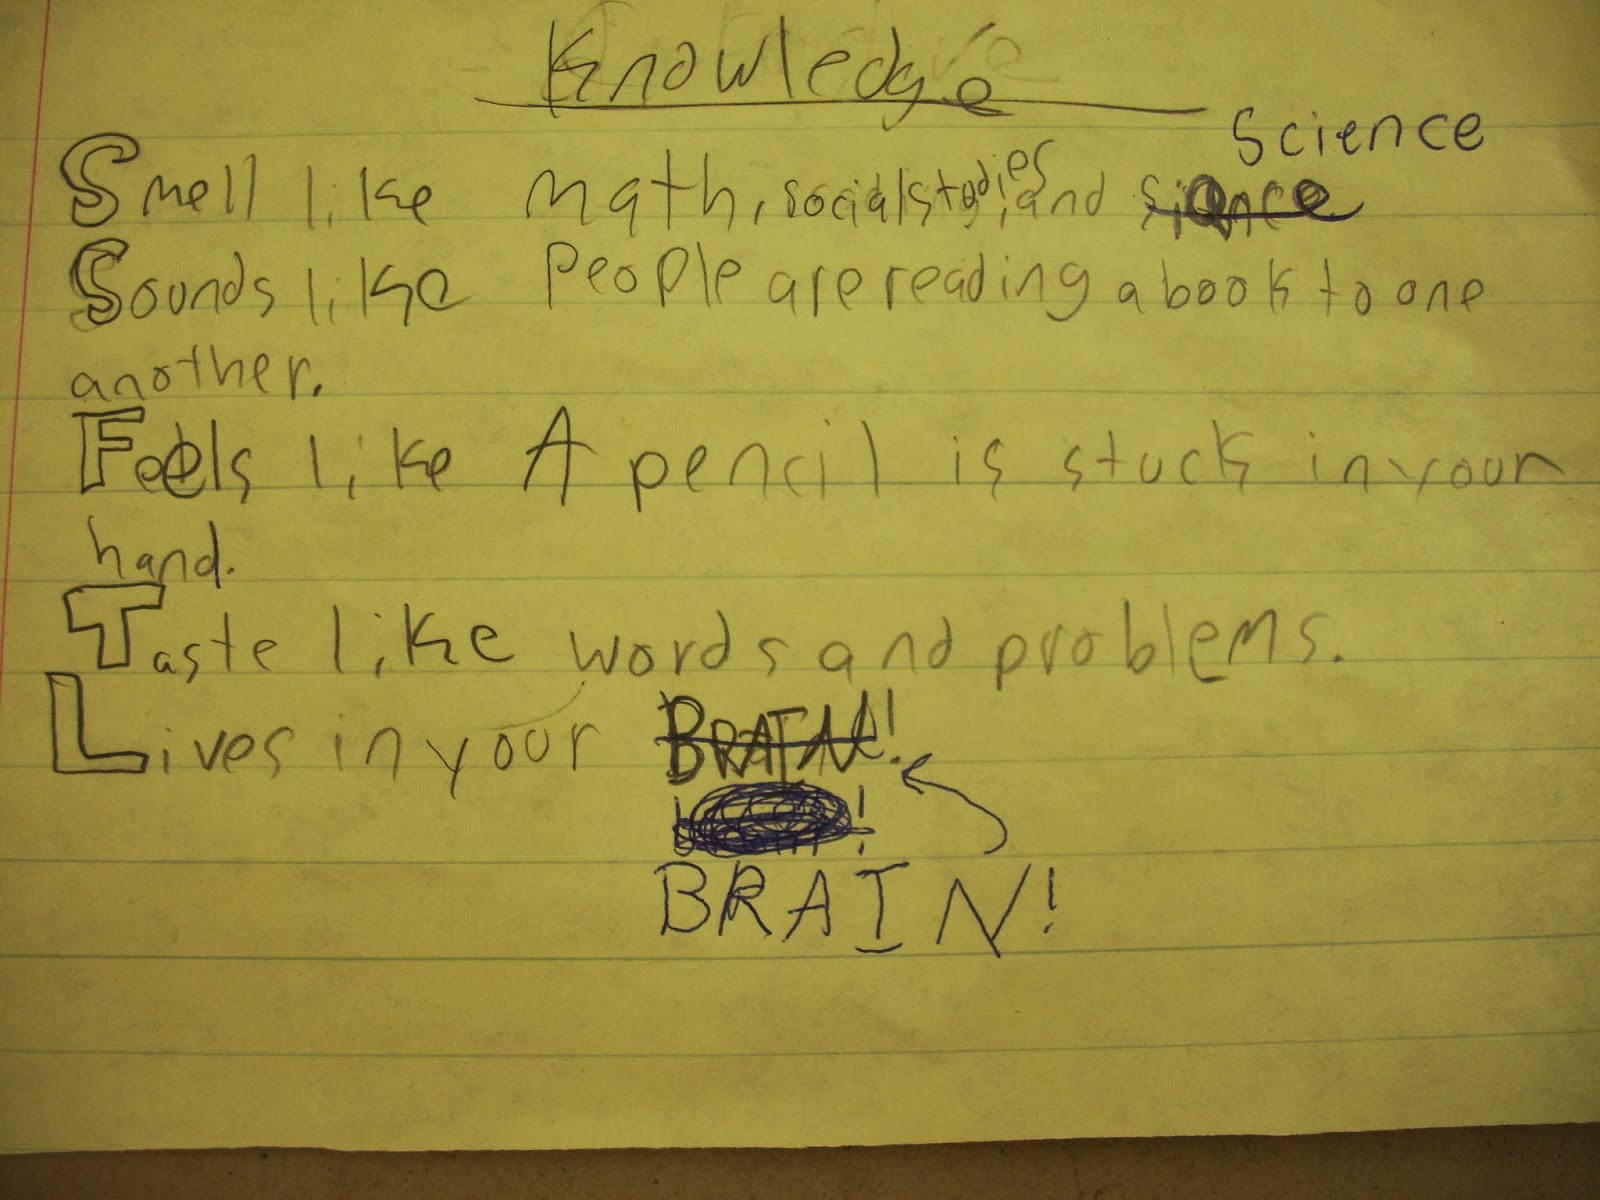 Knowledge
Science
Smell like math, social studies, and sience
Sounds like People are reading a book to one
another.
Feels like A pencil is stuck in your
hand.
Taste like words and problems.
Lives in your BRAIN!
BRAIN!